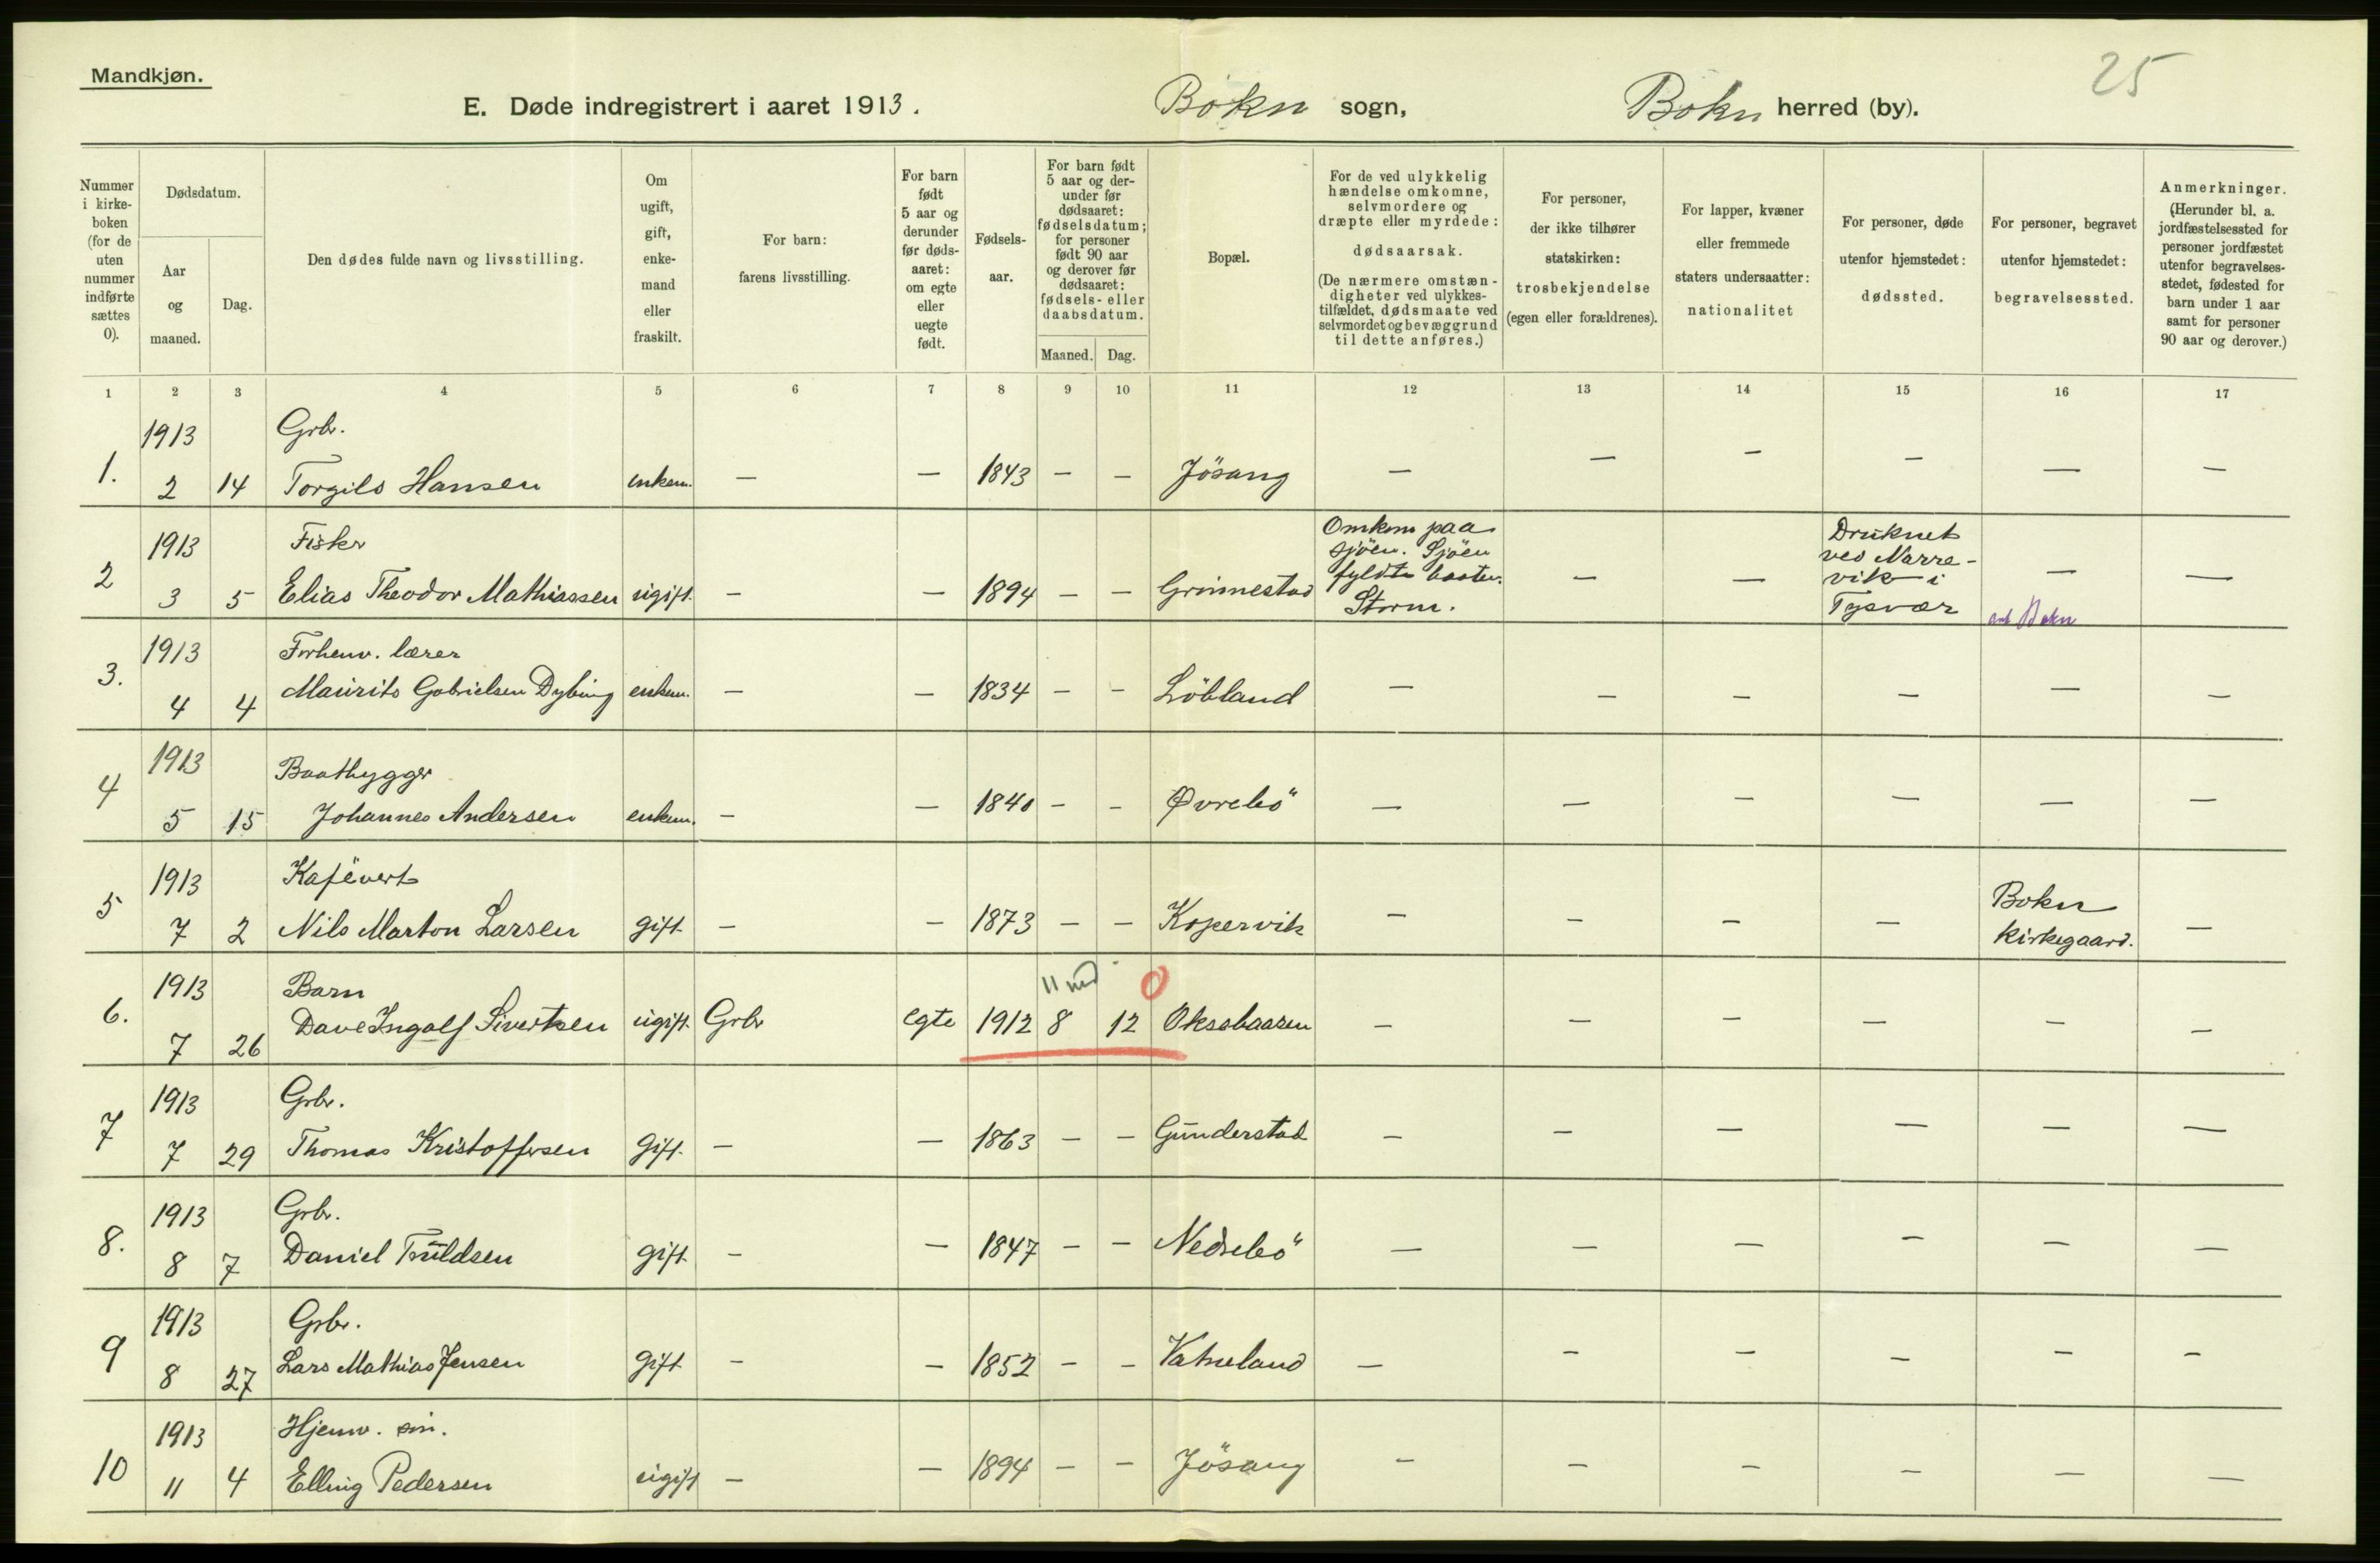 Mandkjøn.
25
E. Døde indregistrert i aaret 1913. Bokn sogn, Bokn herred (by).
Nummer i kirkeboken (for de uten nummer indførte sættes 0).
Dødsdatum.
Aar og maaned.
Dag.
Den dødes fulde navn og livsstilling.
Om ugift, gift, enkemand eller fraskilt.
For barn: farens livsstilling.
For barn født 5 aar og derunder før dødsaaret: om egte eller uegte født.
Fødselsaar.
For barn født 5 aar og derunder før dødsaaret: fødselsdatum; for personer født 90 aar og derover før dødsaaret: fødsels- eller daabsdatum.
Maaned. Dag.
Bopæl.
For de ved ulykkelig hændelse omkomne, selvmordere og dræpte eller myrdede: dødsaarsak. (De nærmere omstændigheter ved ulykkestilfældet, dødsmaate ved selvmordet og bevæggrund til dette anføres.)
For personer, der ikke tilhører statskirken: trosbekjendelse (egen eller forældrenes).
For lapper, kvæner eller fremmede staters undersaatter: nationalitet
For personer, døde utenfor hjemstedet: dødssted.
For personer, begravet utenfor hjemstedet: begravelsessted.
Anmerkninger. (Herunder bl. a. jordfæstelsessted for personer jordfæstet utenfor begravelsesstedet, fødested for barn under 1 aar samt for personer 90 aar og derover.)
1 2 3 4 5 6 7 8 9 10 11 12 13 14 15 16 17
1913 Grbr.
1. 2 14 Torgils Hansen enkem. — — 1843 — — Jösang — — — — — —
1913 Fisker
2 3 5 Elias Theodor Mathiassen ugift. — — 1894 — — Grinnestad Omkom paa sjöen. Sjöen fyldte baaten. Storm. — — Druknet ved Narrevik i Tysvær — — Bokn
1913 Forhenv. lærer
3. 4 4 Maurits Gabrielsen Dybing enkem. — — 1834 — — Löbland — — — — — —
1913 Baatbygger
4 5 15 Johannes Andersen enkem. — — 1840 — — Øvrebö — — — — — —
1913 Kafévert
5 7 2 Nils Marton Larsen gift. — — 1873 — — Kopervik — — — — Bokn Kirkegaard. —
1913 Barn 11 md 0
6. 7 26 Dave Ingolf Sivertsen ugift. Grbr egte 1912 8 12 Oksebaasen — — — — — —
1913 Grbr.
7 7 29 Thomas Kristoffersen gift. — — 1863 — — Gunderstad — — — — — —
1913 Grbr.
8. 8 7 Daniel Truldsen gift. — — 1847 — — Nedrebö — — — — — —
1913 Grbr.
9 8 27 Lars Mathias Jensen gift. — — 1852 — — Vatneland — — — — — —
1913 Hjemv. søn.
10 11 4 Elling Pedersen ugift — — 1894 — — Jösang — — — — — —